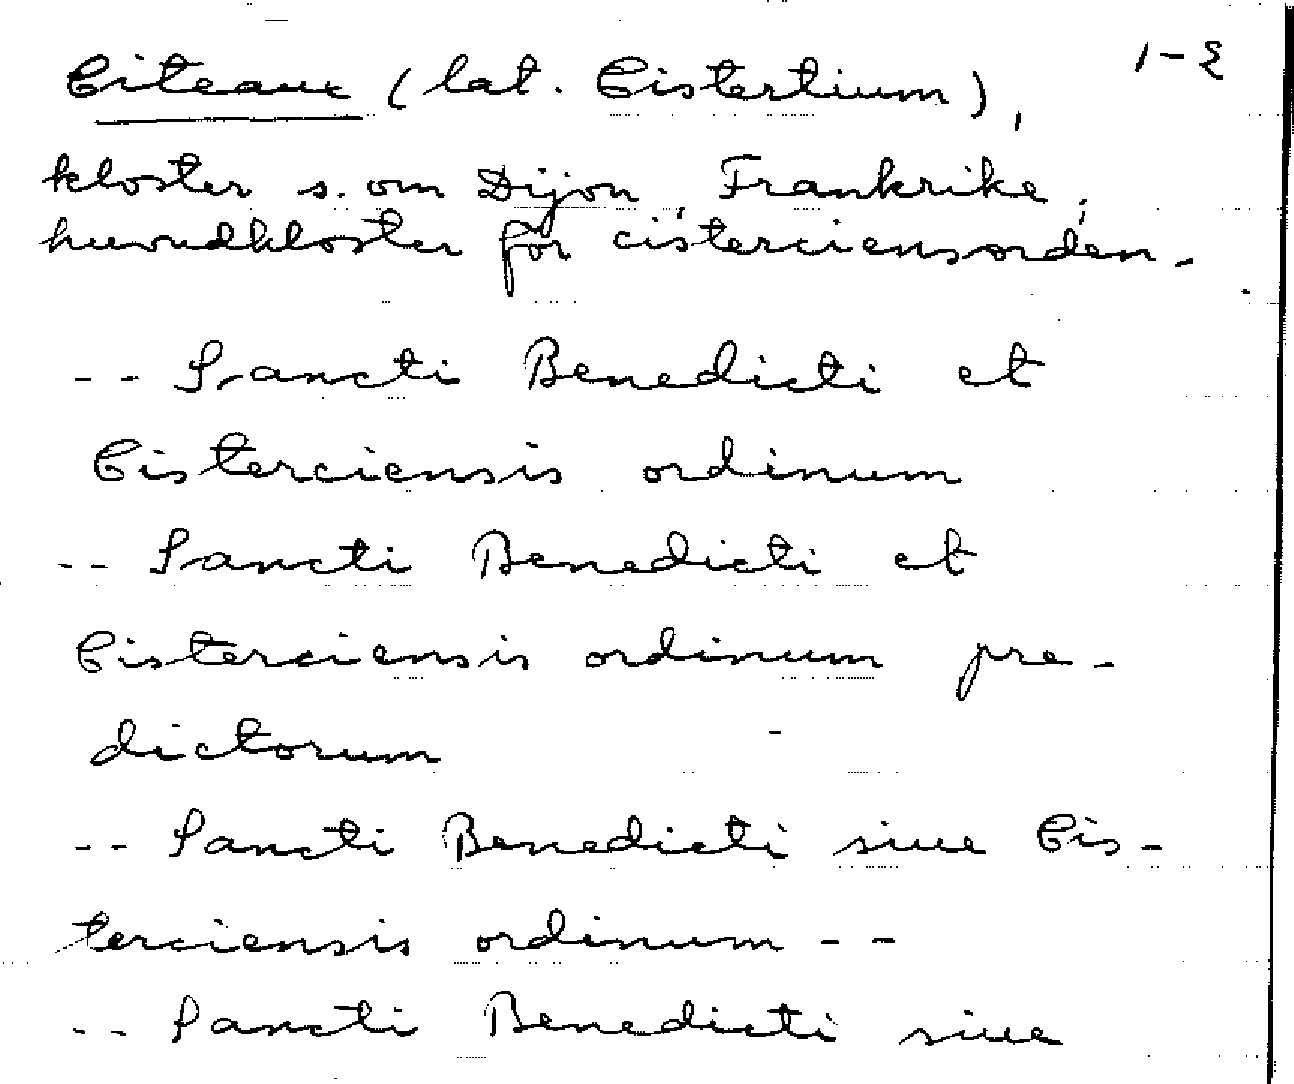 Citeaux (lat. Cistertium), 1-2
kloster s. om Dijon, Frankrike;
huvudkloster för cisterciensorden.
-- Sancti Benedicti et
Cisterciensis ordinum
-- Sancti Benedicti et
Cisterciensis ordinum pre-
dictorum
-- Sancti Benedicti siue Cis-
terciensis ordinum --
-- Sancti Benedicti siue